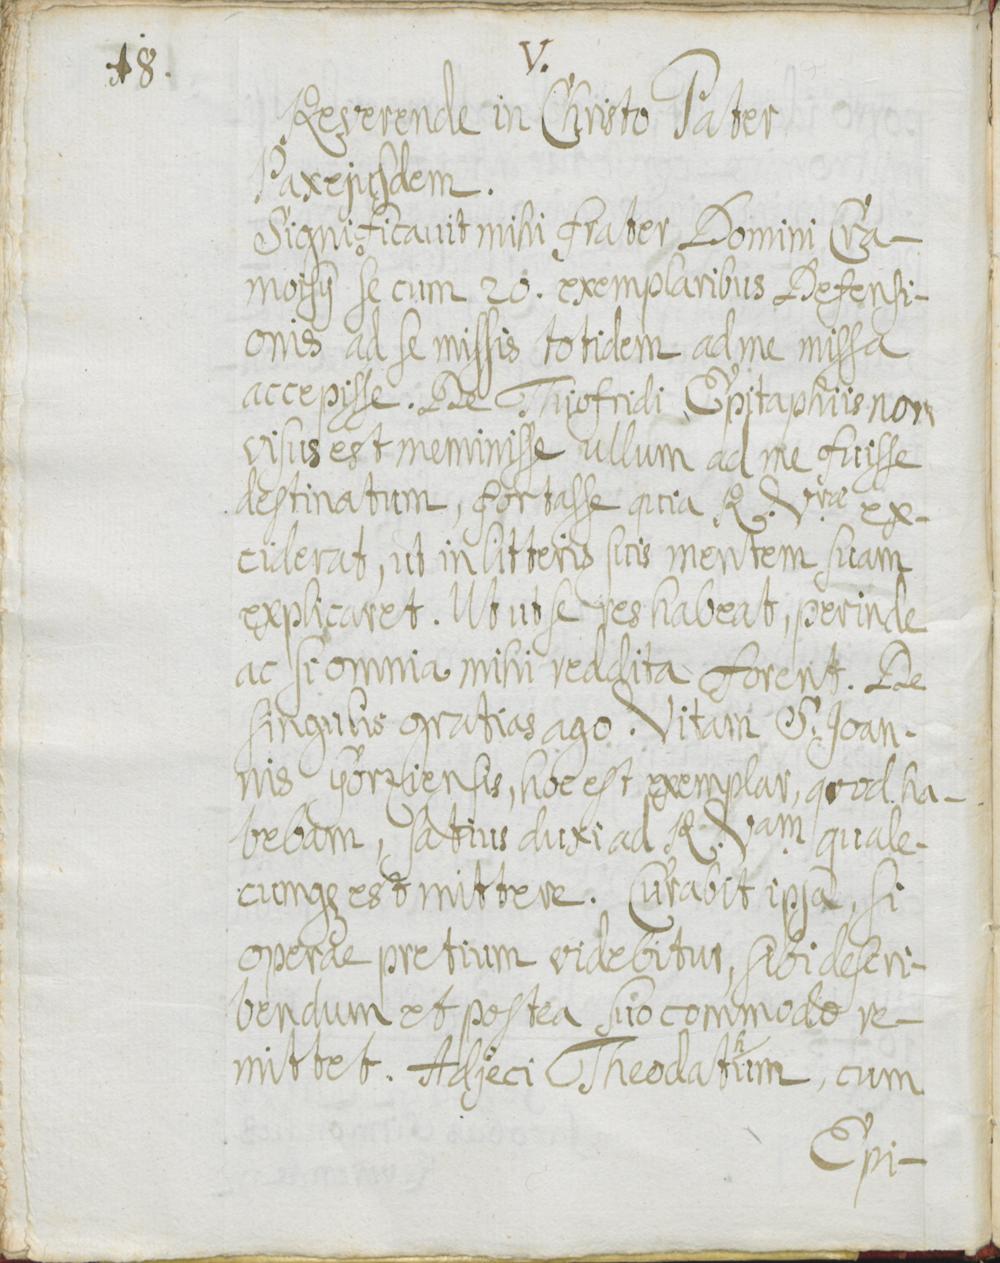 18.
V.
Reverende in Christo Pater
Pax ejusdem.
Significavit mihi frater Domini Cra-
moisij se cum 20. exemplaribus Defensi-
onis ad se missis totidem ad me missa
accepisse. De Thiofridi Epitaphiis non
visus est meminisse ullum ad me fuisse
destinatum, fortasse quia R. Vrae ex-
ciderat, ut in litteris suis mentem suam
explicaret. Ut ut se res habeat, perinde
ac si omnia mihi reddita forent. De
singulis gratias ago. Vitam S. Joan-
nis Gorziensis, hoc est exemplar, quod ha-
bebam, satius duxi ad R. Vam quale-
cumq; est mittere. Curabit ipsa, si
operae pretium videbitur, sibi descri-
bendum et postea suo commodo re-
mittet. Adjeci Theodatum, cum
Epi-